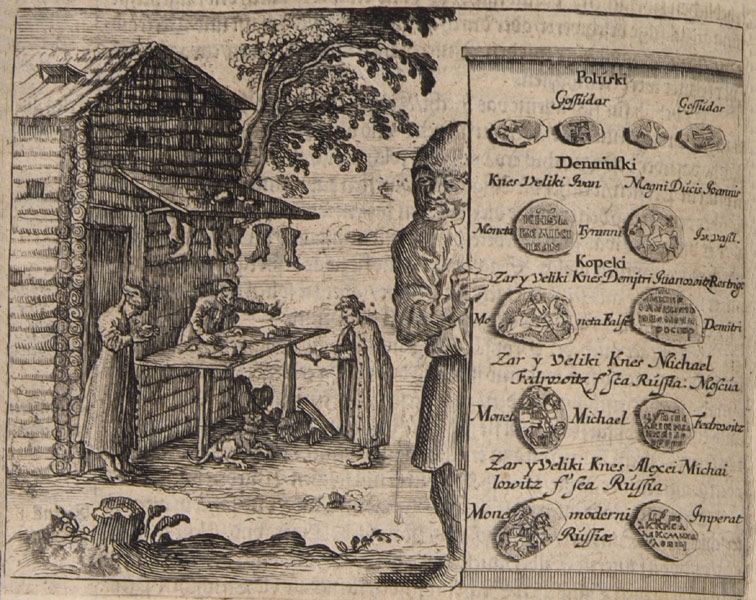 Poluski
Gossudar Gossudar
Denninski
Knes Veliki Ivan Magni Ducis Ioannis
Moneta Tyranni Iv. vasil.
Kopeki
Zar y Veliki Knes Demitri Iuanowitz Rostrigo
Mo neta False Demitri
Zar y Veliki Knes Michael
Fedrowitz f' sea Russia. Moscua
Monet Michael Fedrowitz
Zar y Veliki Knes Alexei Michai
lowitz f' sea Russia
Monet moderni Imperat
Russiæ